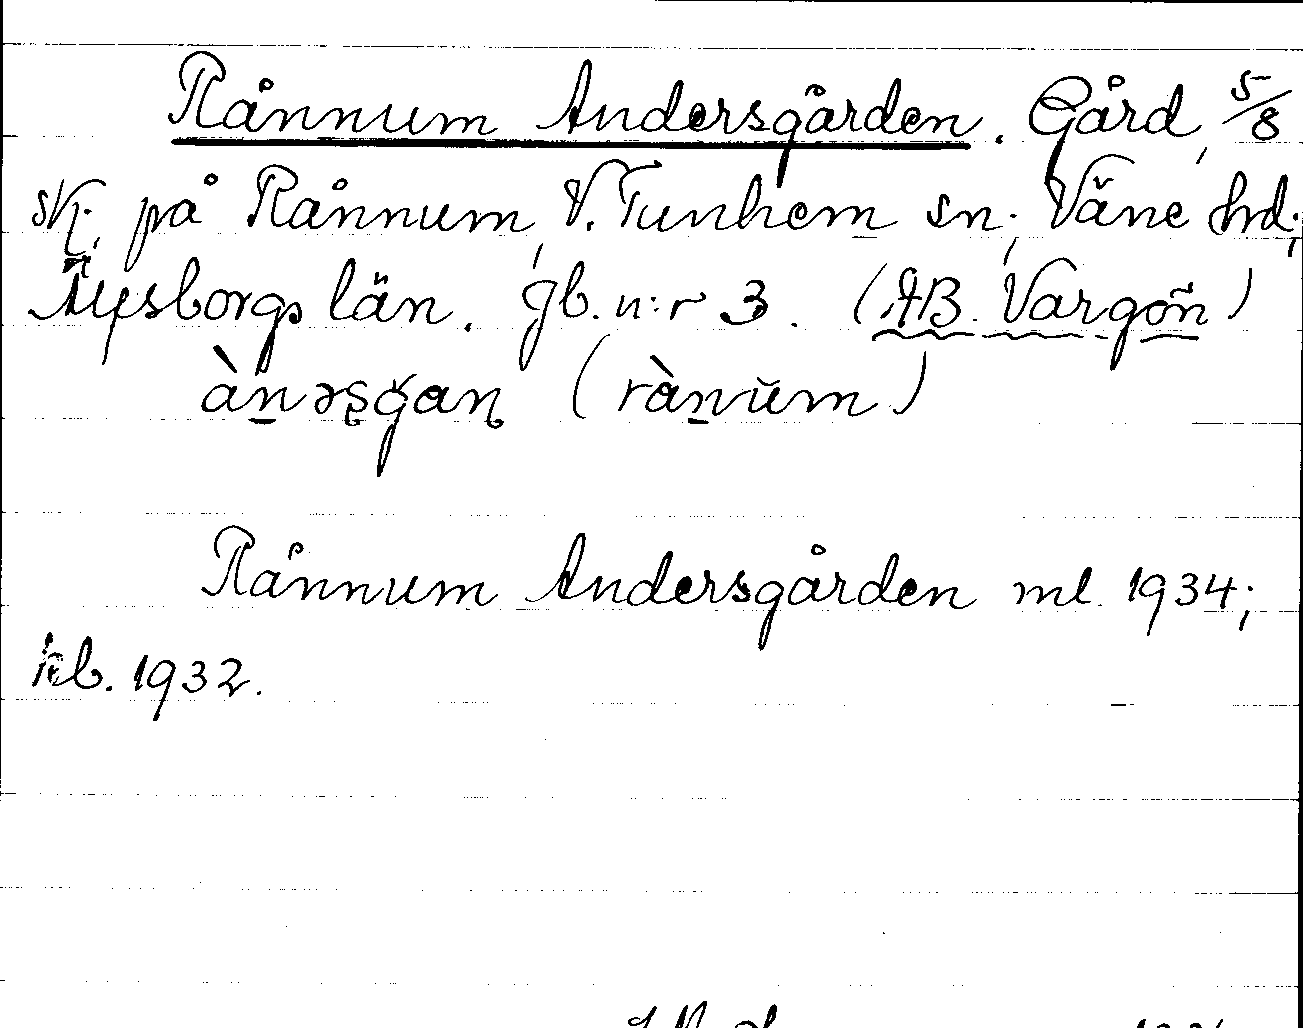 Rånnum Andersgården. Gård, 5/8
skj. på Rånnum, V. Tunhem sn; Väne hd;
Älvsborgs län. Jb. n:r 3. (AB. Vargön)
àn̲əʂǵaɳ (ràn̲ŭm)
Rånnum Andersgården ml 1934;
kb. 1932.